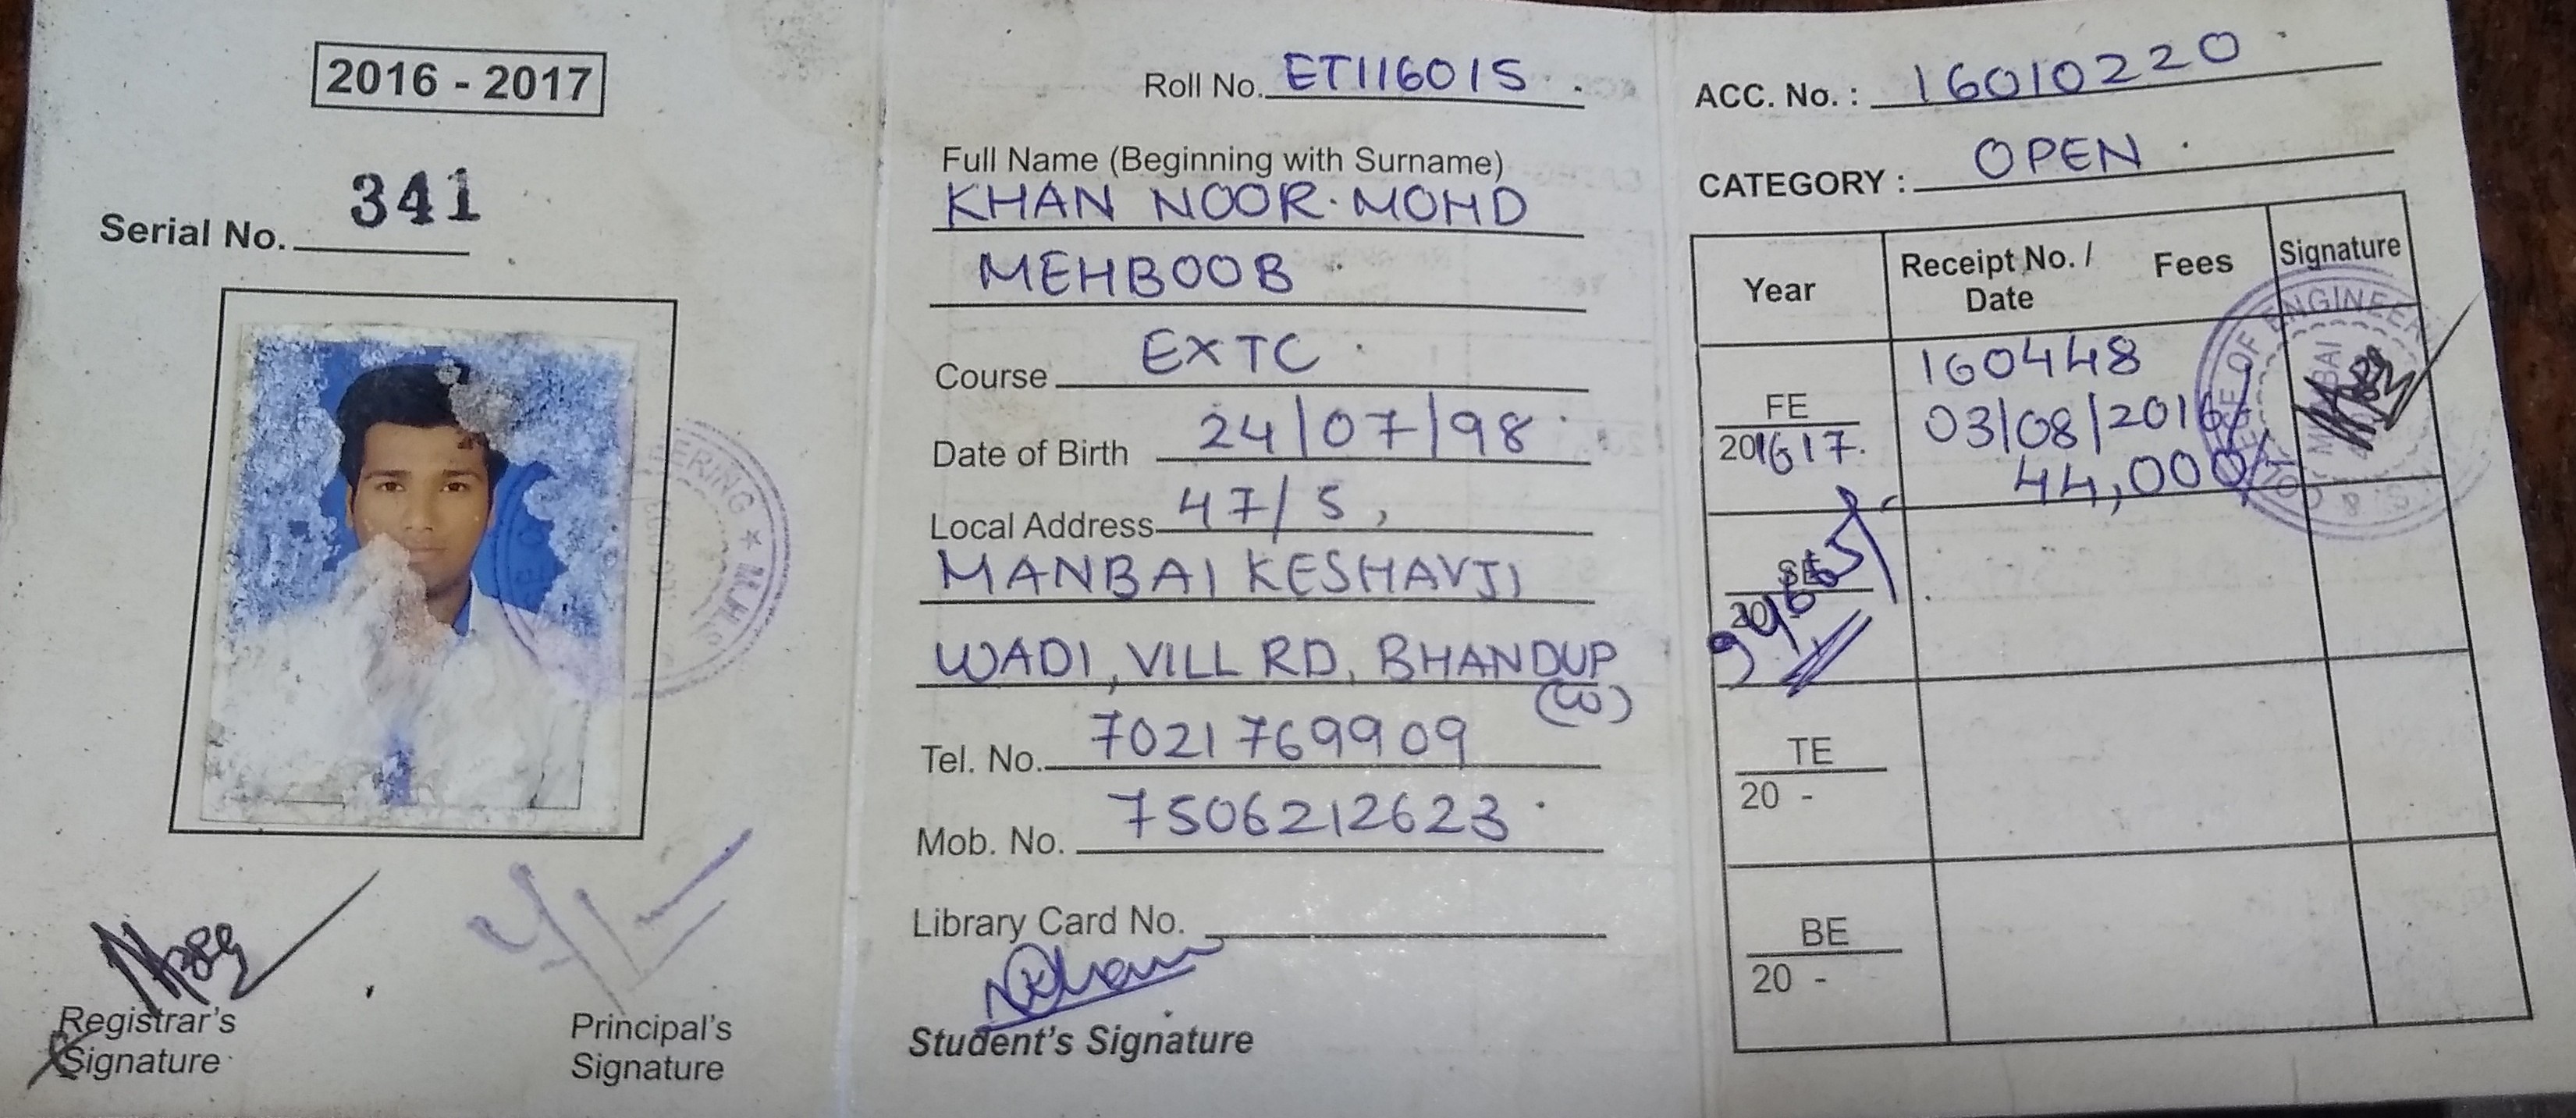 2016 - 2017
Serial No. 341
Registrar's
Signature
Principal's
Signature
Roll No. ET116015
Full Name (Beginning with Surname)
KHAN NOOR. MOHD
MEHBOOB
Course EXTC
Date of Birth 24/07/98
Local Address 47/5,
MANBAI KESHAVJI
WADI, VILL RD, BHANDUP
(W)
Tel. No. 7021769909
Mob. No. 7506212623
Library Card No.
Student's Signature
ACC. No. : 16010220
CATEGORY : OPEN
Year Receipt No. / Date Fees Signature
FE
201617. 160448
03/08/2016/
44,000/
SE
20
TE
20 -
BE
20 -
ERING ★ M.H.
OF ENGINEER
MUMBAI